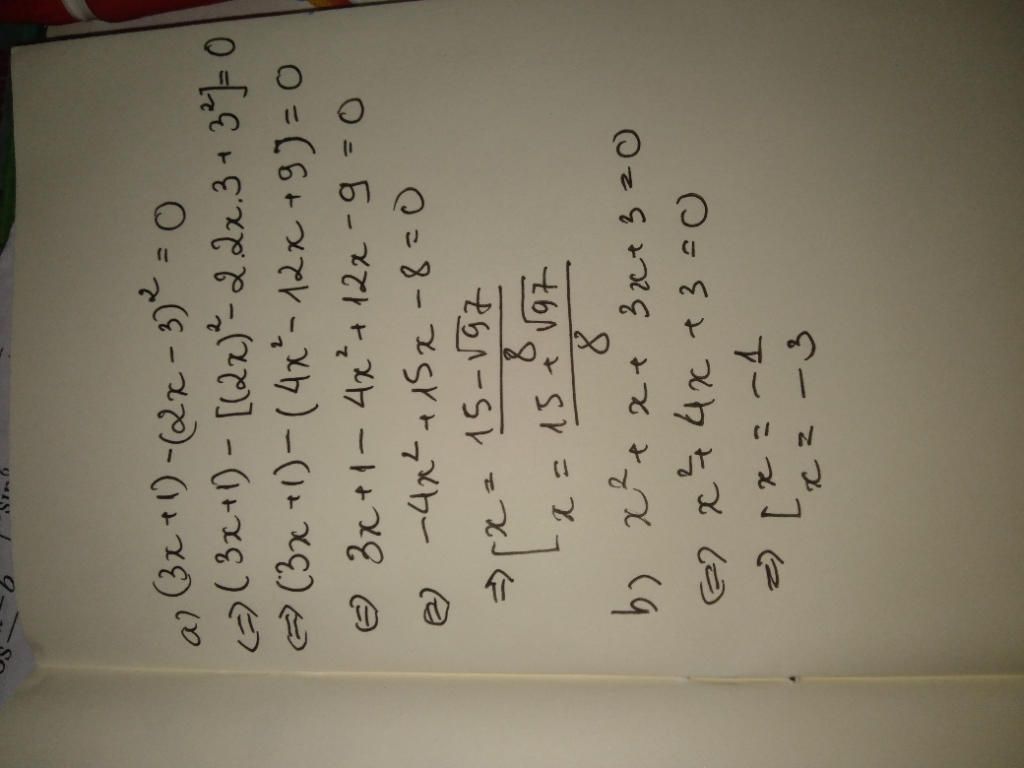 a) (3x+1)-(2x-3)² = 0
<=> (3x+1) - [(2x)² - 2.2x.3 + 3²] = 0
<=> (3x+1) - (4x² - 12x + 9) = 0
<=> 3x+1 - 4x² + 12x - 9 = 0
<=> -4x² + 15x - 8 = 0
=> [ x = (15-√97)/8
[ x = (15+√97)/8
b) x² + x + 3x + 3 = 0
<=> x² + 4x + 3 = 0
=> [ x = -1
x = -3